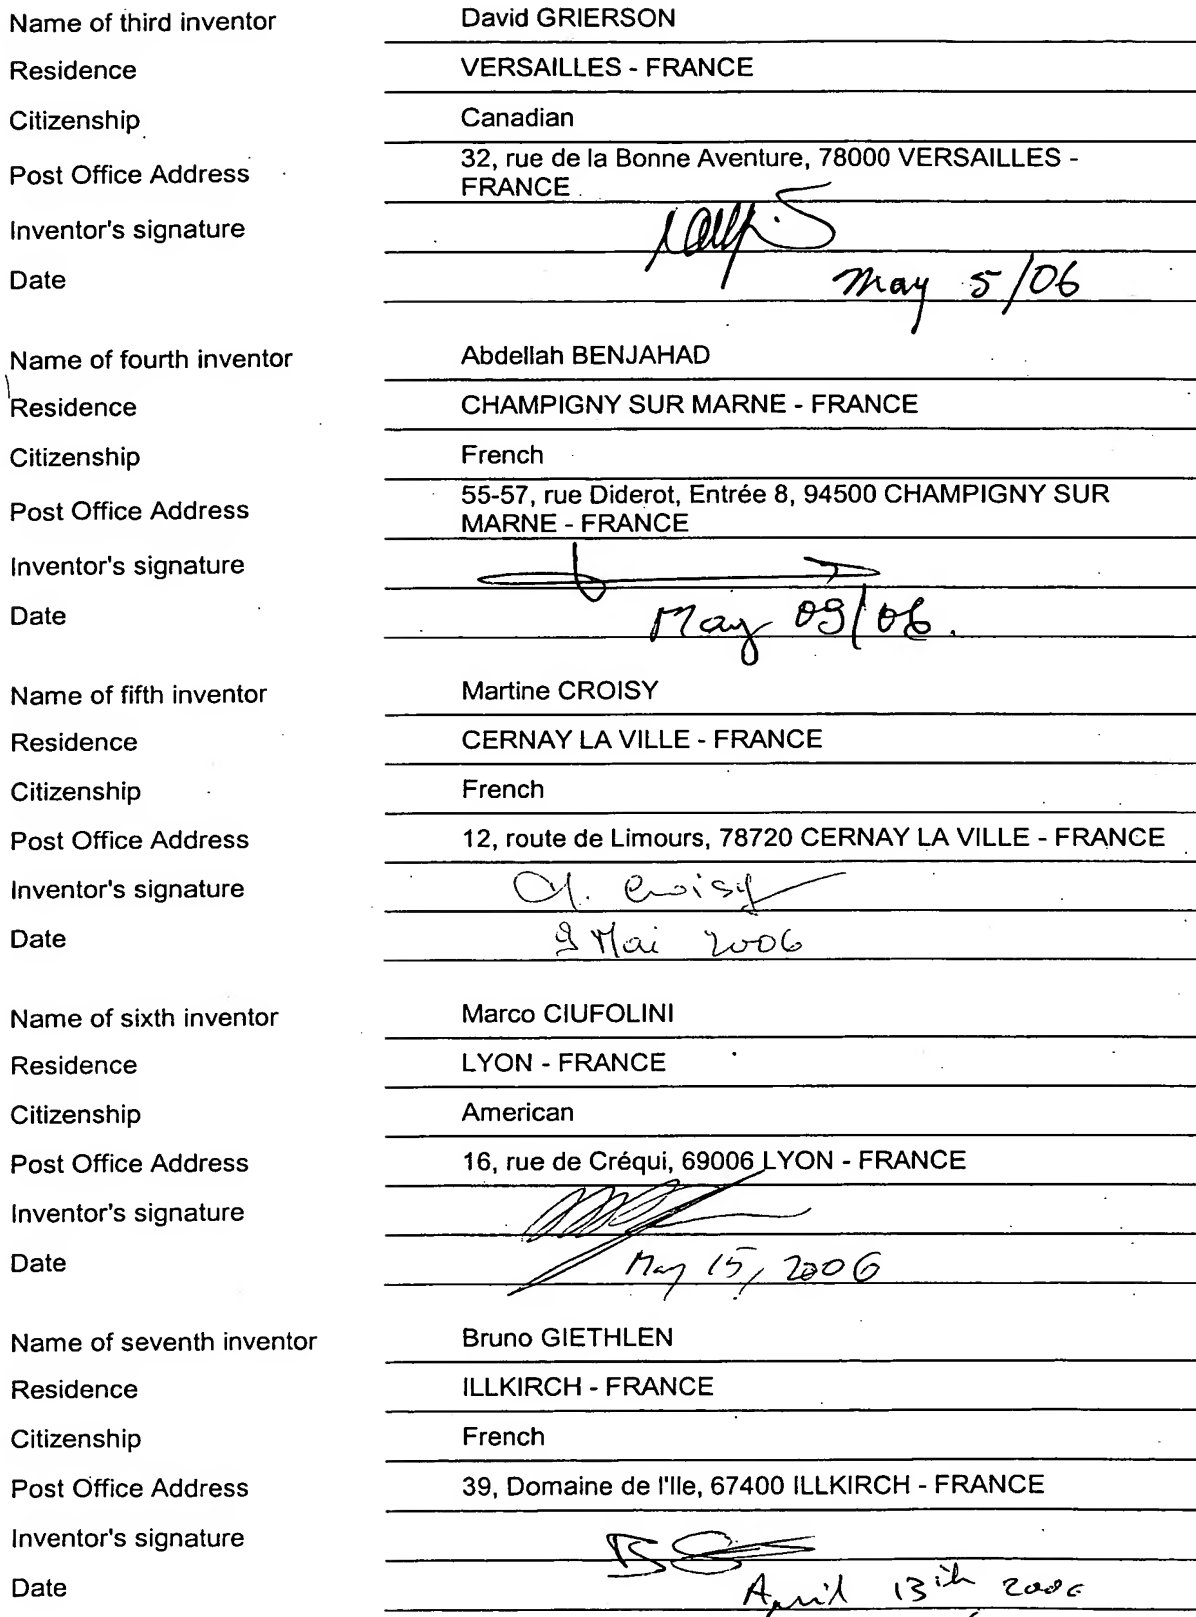 Name of third inventor David GRIERSON
Residence VERSAILLES - FRANCE
Citizenship Canadian
Post Office Address 32, rue de la Bonne Aventure, 78000 VERSAILLES -
FRANCE
Inventor's signature
Date May 5/06
Name of fourth inventor Abdellah BENJAHAD
Residence CHAMPIGNY SUR MARNE - FRANCE
Citizenship French
Post Office Address 55-57, rue Diderot, Entrée 8, 94500 CHAMPIGNY SUR
MARNE - FRANCE
Inventor's signature
Date May 09/06.
Name of fifth inventor Martine CROISY
Residence CERNAY LA VILLE - FRANCE
Citizenship French
Post Office Address 12, route de Limours, 78720 CERNAY LA VILLE - FRANCE
Inventor's signature M. Croisy
Date 9 Mai 2006
Name of sixth inventor Marco CIUFOLINI
Residence LYON - FRANCE
Citizenship American
Post Office Address 16, rue de Créqui, 69006 LYON - FRANCE
Inventor's signature
Date May 15, 2006
Name of seventh inventor Bruno GIETHLEN
Residence ILLKIRCH - FRANCE
Citizenship French
Post Office Address 39, Domaine de l'Ile, 67400 ILLKIRCH - FRANCE
Inventor's signature
Date April 13th 2006